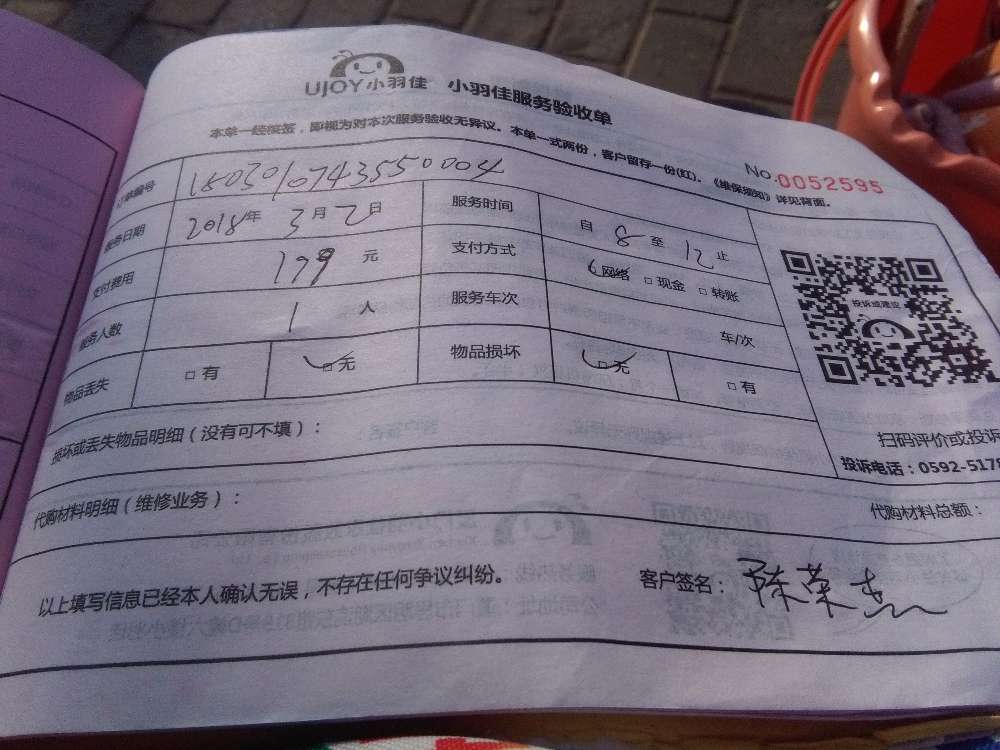 UJOY小羽佳 小羽佳服务验收单
本单一经接签，即视为对本次服务验收无异议。本单一式两份，客户留存一份(红)。《维保须知》详见背面。
No.0052595
订单编号 18030107435550004
服务日期 2018年 3月 2日 服务时间 自 8 至 12 止
支付费用 199 元 支付方式 网络 □ 现金 □ 转账
服务人数 1 人 服务车次 车/次
物品丢失 □ 有 □ 无 物品损坏 □ 无 □ 有
投诉或建议
扫码评价或投诉
投诉电话：0592-5178
损坏或丢失物品明细（没有可不填）：
代购材料明细（维修业务）： 代购材料总额：
以上填写信息已经本人确认无误，不存在任何争议纠纷。 客户签名： 陈荣杰